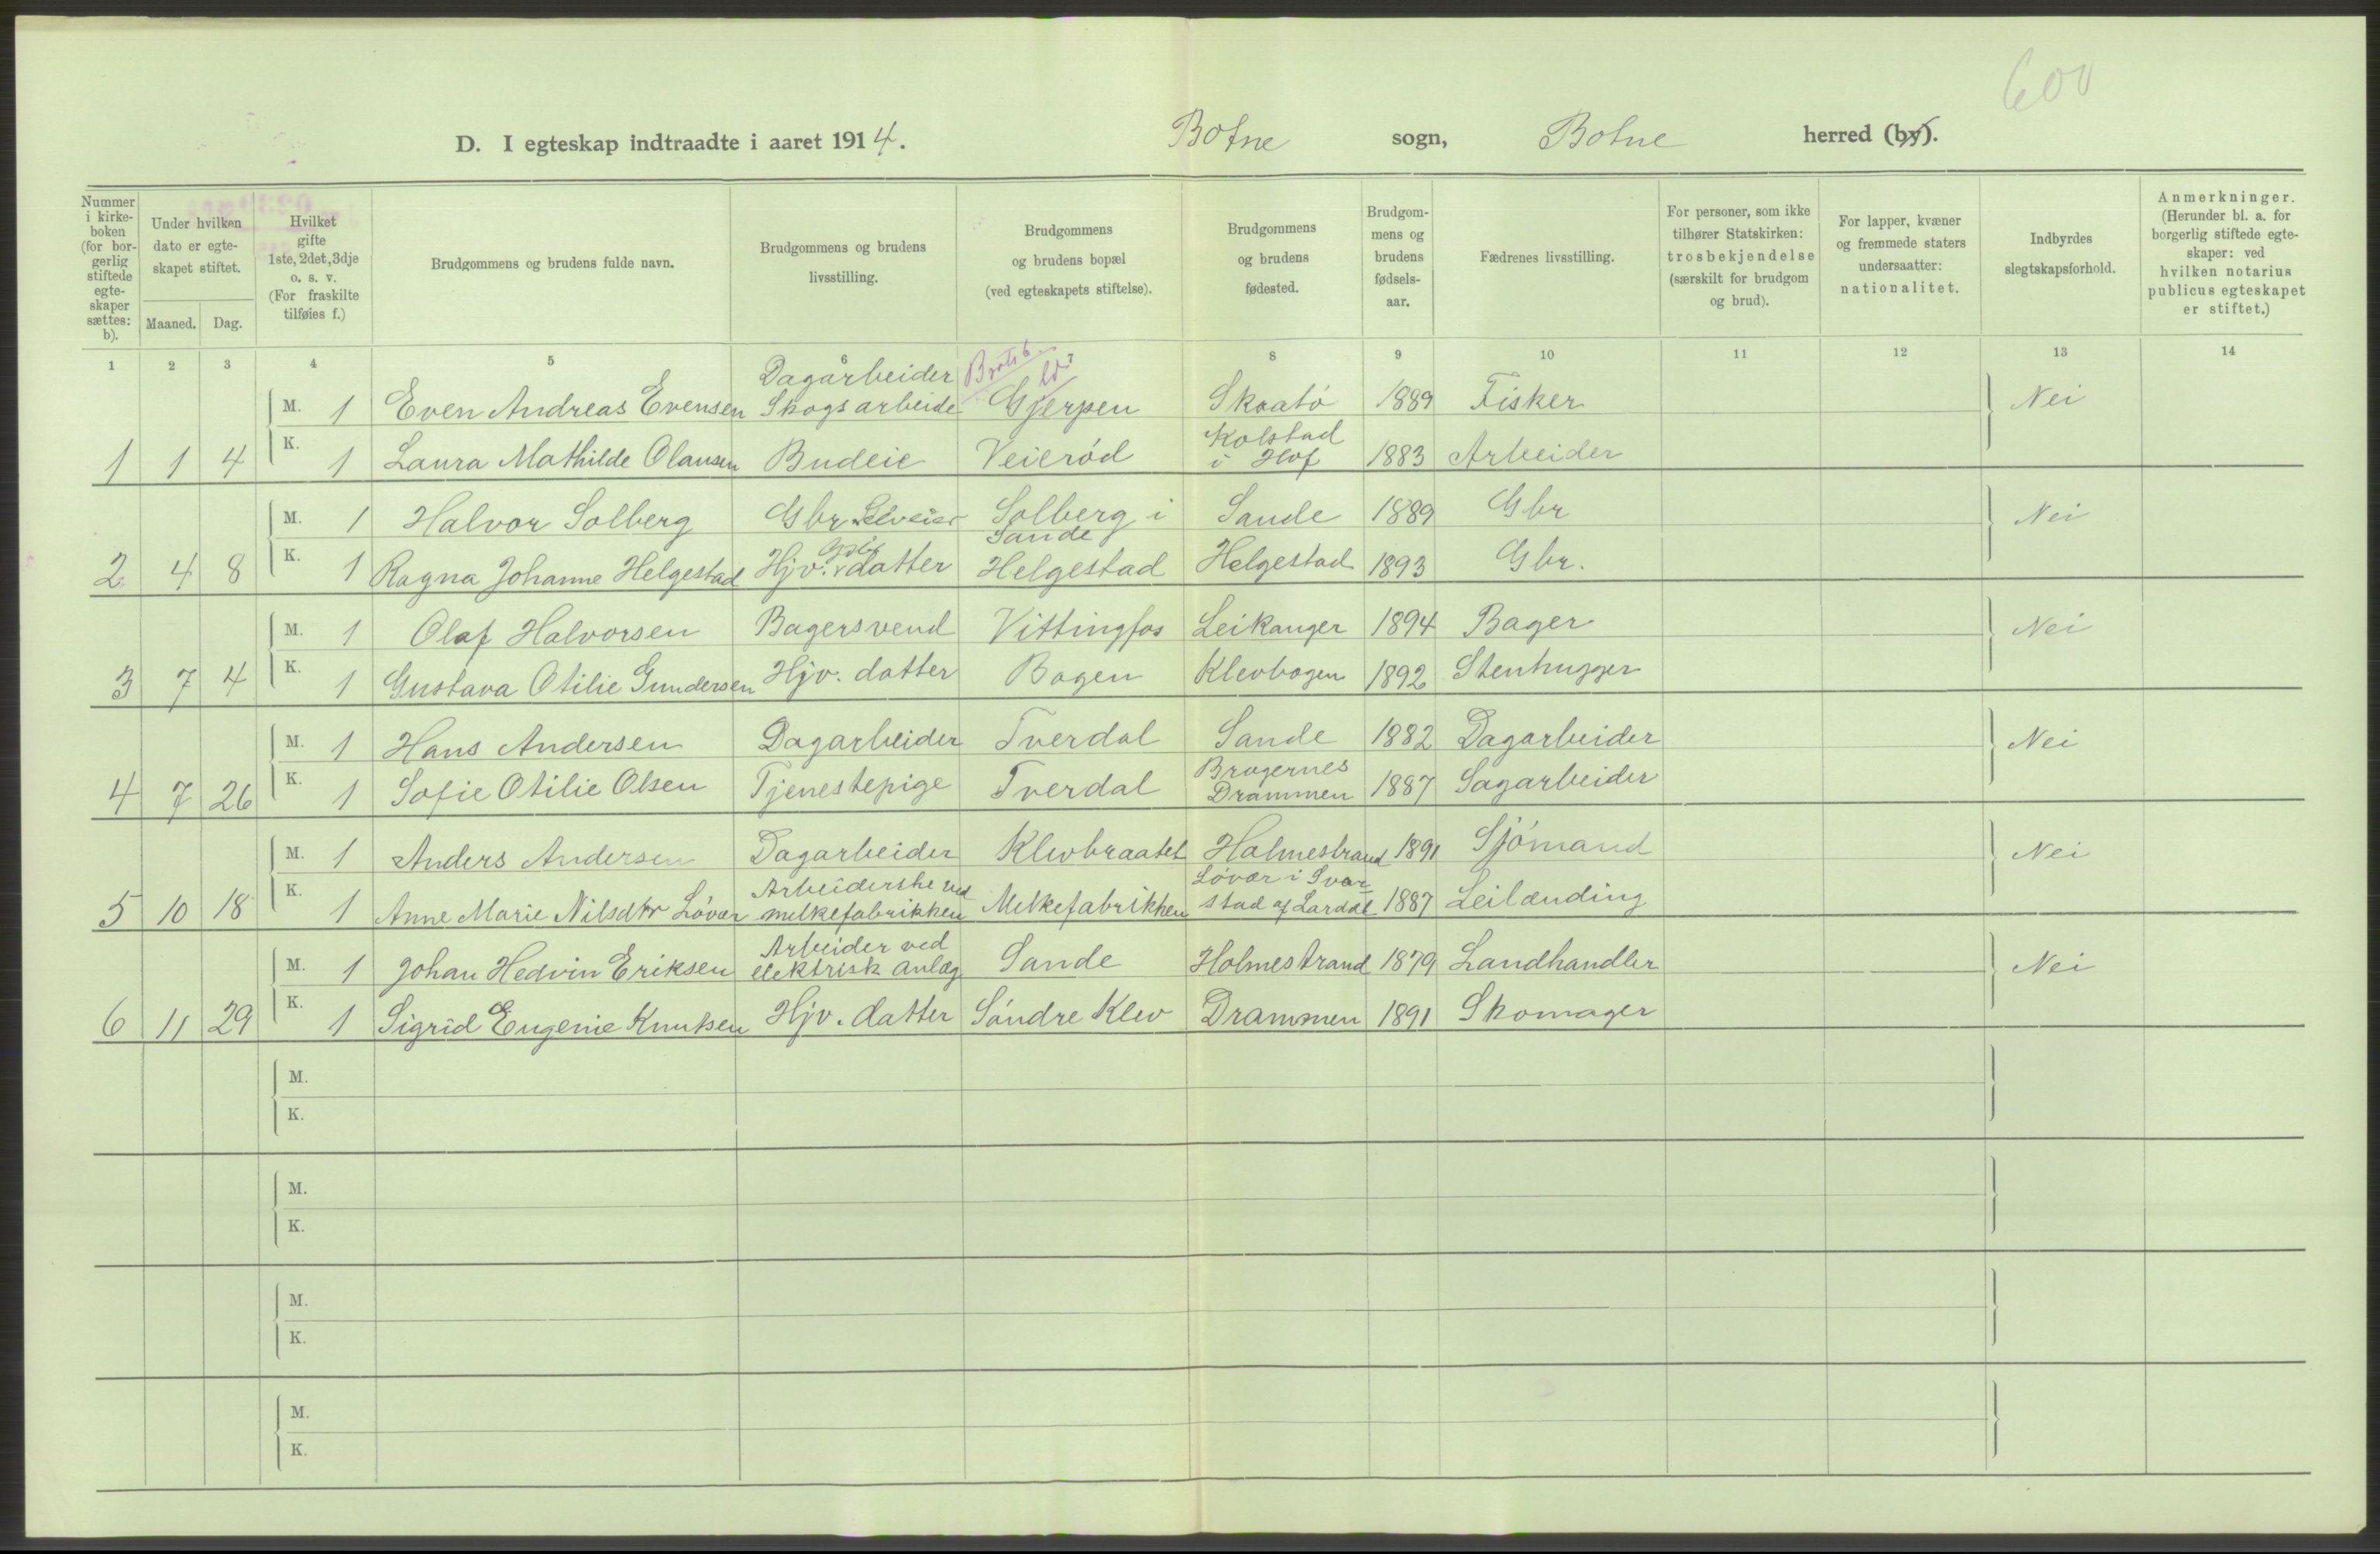 600
D. I egteskap indtraadte i aaret 1914. Botne sogn, Botne herred (by).
Nummer i kirke-boken (for bor-gerlig stiftede egte-skaper sættes: b).
Under hvilken dato er egte-skapet stiftet.
Maaned. Dag.
Hvilket gifte 1ste, 2det, 3dje o. s. v. (For fraskilte tilføies f.)
Brudgommens og brudens fulde navn.
Brudgommens og brudens livsstilling.
Brudgommens og brudens bopæl (ved egteskapets stiftelse).
Brudgommens og brudens fødested.
Brudgom-mens og brudens fødsels-aar.
Fædrenes livsstilling.
For personer, som ikke tilhører Statskirken: trosbekjendelse (særskilt for brudgom og brud).
For lapper, kvæner og fremmede staters undersaatter: nationalitet.
Indbyrdes slegtskapsforhold.
Anmerkninger. (Herunder bl. a. for borgerlig stiftede egte-skaper: ved hvilken notarius publicus egteskapet er stiftet.)
1 2 3 4 5 6 7 8 9 10 11 12 13 14
Dagarbeider
M. 1 Even Andreas Evensen Skogsarbeide Gjerpen Skaatö 1889 Fisker Nei
Kolstad
1 1 4 K. 1 Laura Mathilde Olausen Budeie Veieröd i Hof 1883 Arbeider
M. 1 Halvor Solberg Gbr. Selveier Solberg i Sande 1889 Gbr Nei
Sande
2 4 8 K. 1 Ragna Johanne Helgestad Hjv. Gbr datter Helgestad Helgestad 1893 Gbr.
M. 1 Olaf Halvorsen Bagersvend Vittingfos Leikanger 1894 Bager Nei
3 7 4 K. 1 Gustava Otilie Gundersen Hjv. datter Bogen Klevbogen 1892 Stenhugger
M. 1 Hans Andersen Dagarbeider Tverdal Sande 1882 Dagarbeider Nei
Bragernes
4 7 26 K. 1 Sofie Otilie Olsen Tjenestepige Tverdal Drammen 1887 Sagarbeider
M. 1 Anders Andersen Dagarbeider Klevbraatet Holmestrand 1891 Sjömand Nei
Arbeiderske ved Lövar i Svar-
5 10 18 K. 1 Anne Marie Nilsdtr Lövar melkefabrikken Melkefabrikken stad af Lardal 1887 Leilænding
Arbeider ved
M. 1 Johan Hedvin Eriksen elektrisk anlæg Sande Holmestrand 1879 Landhandler Nei
6 11 29 K. 1 Sigrid Eugenie Knutsen Hjv. datter Söndre Klev Drammen 1891 Skomager
M.
K.
M.
K.
M.
K.
M.
K.